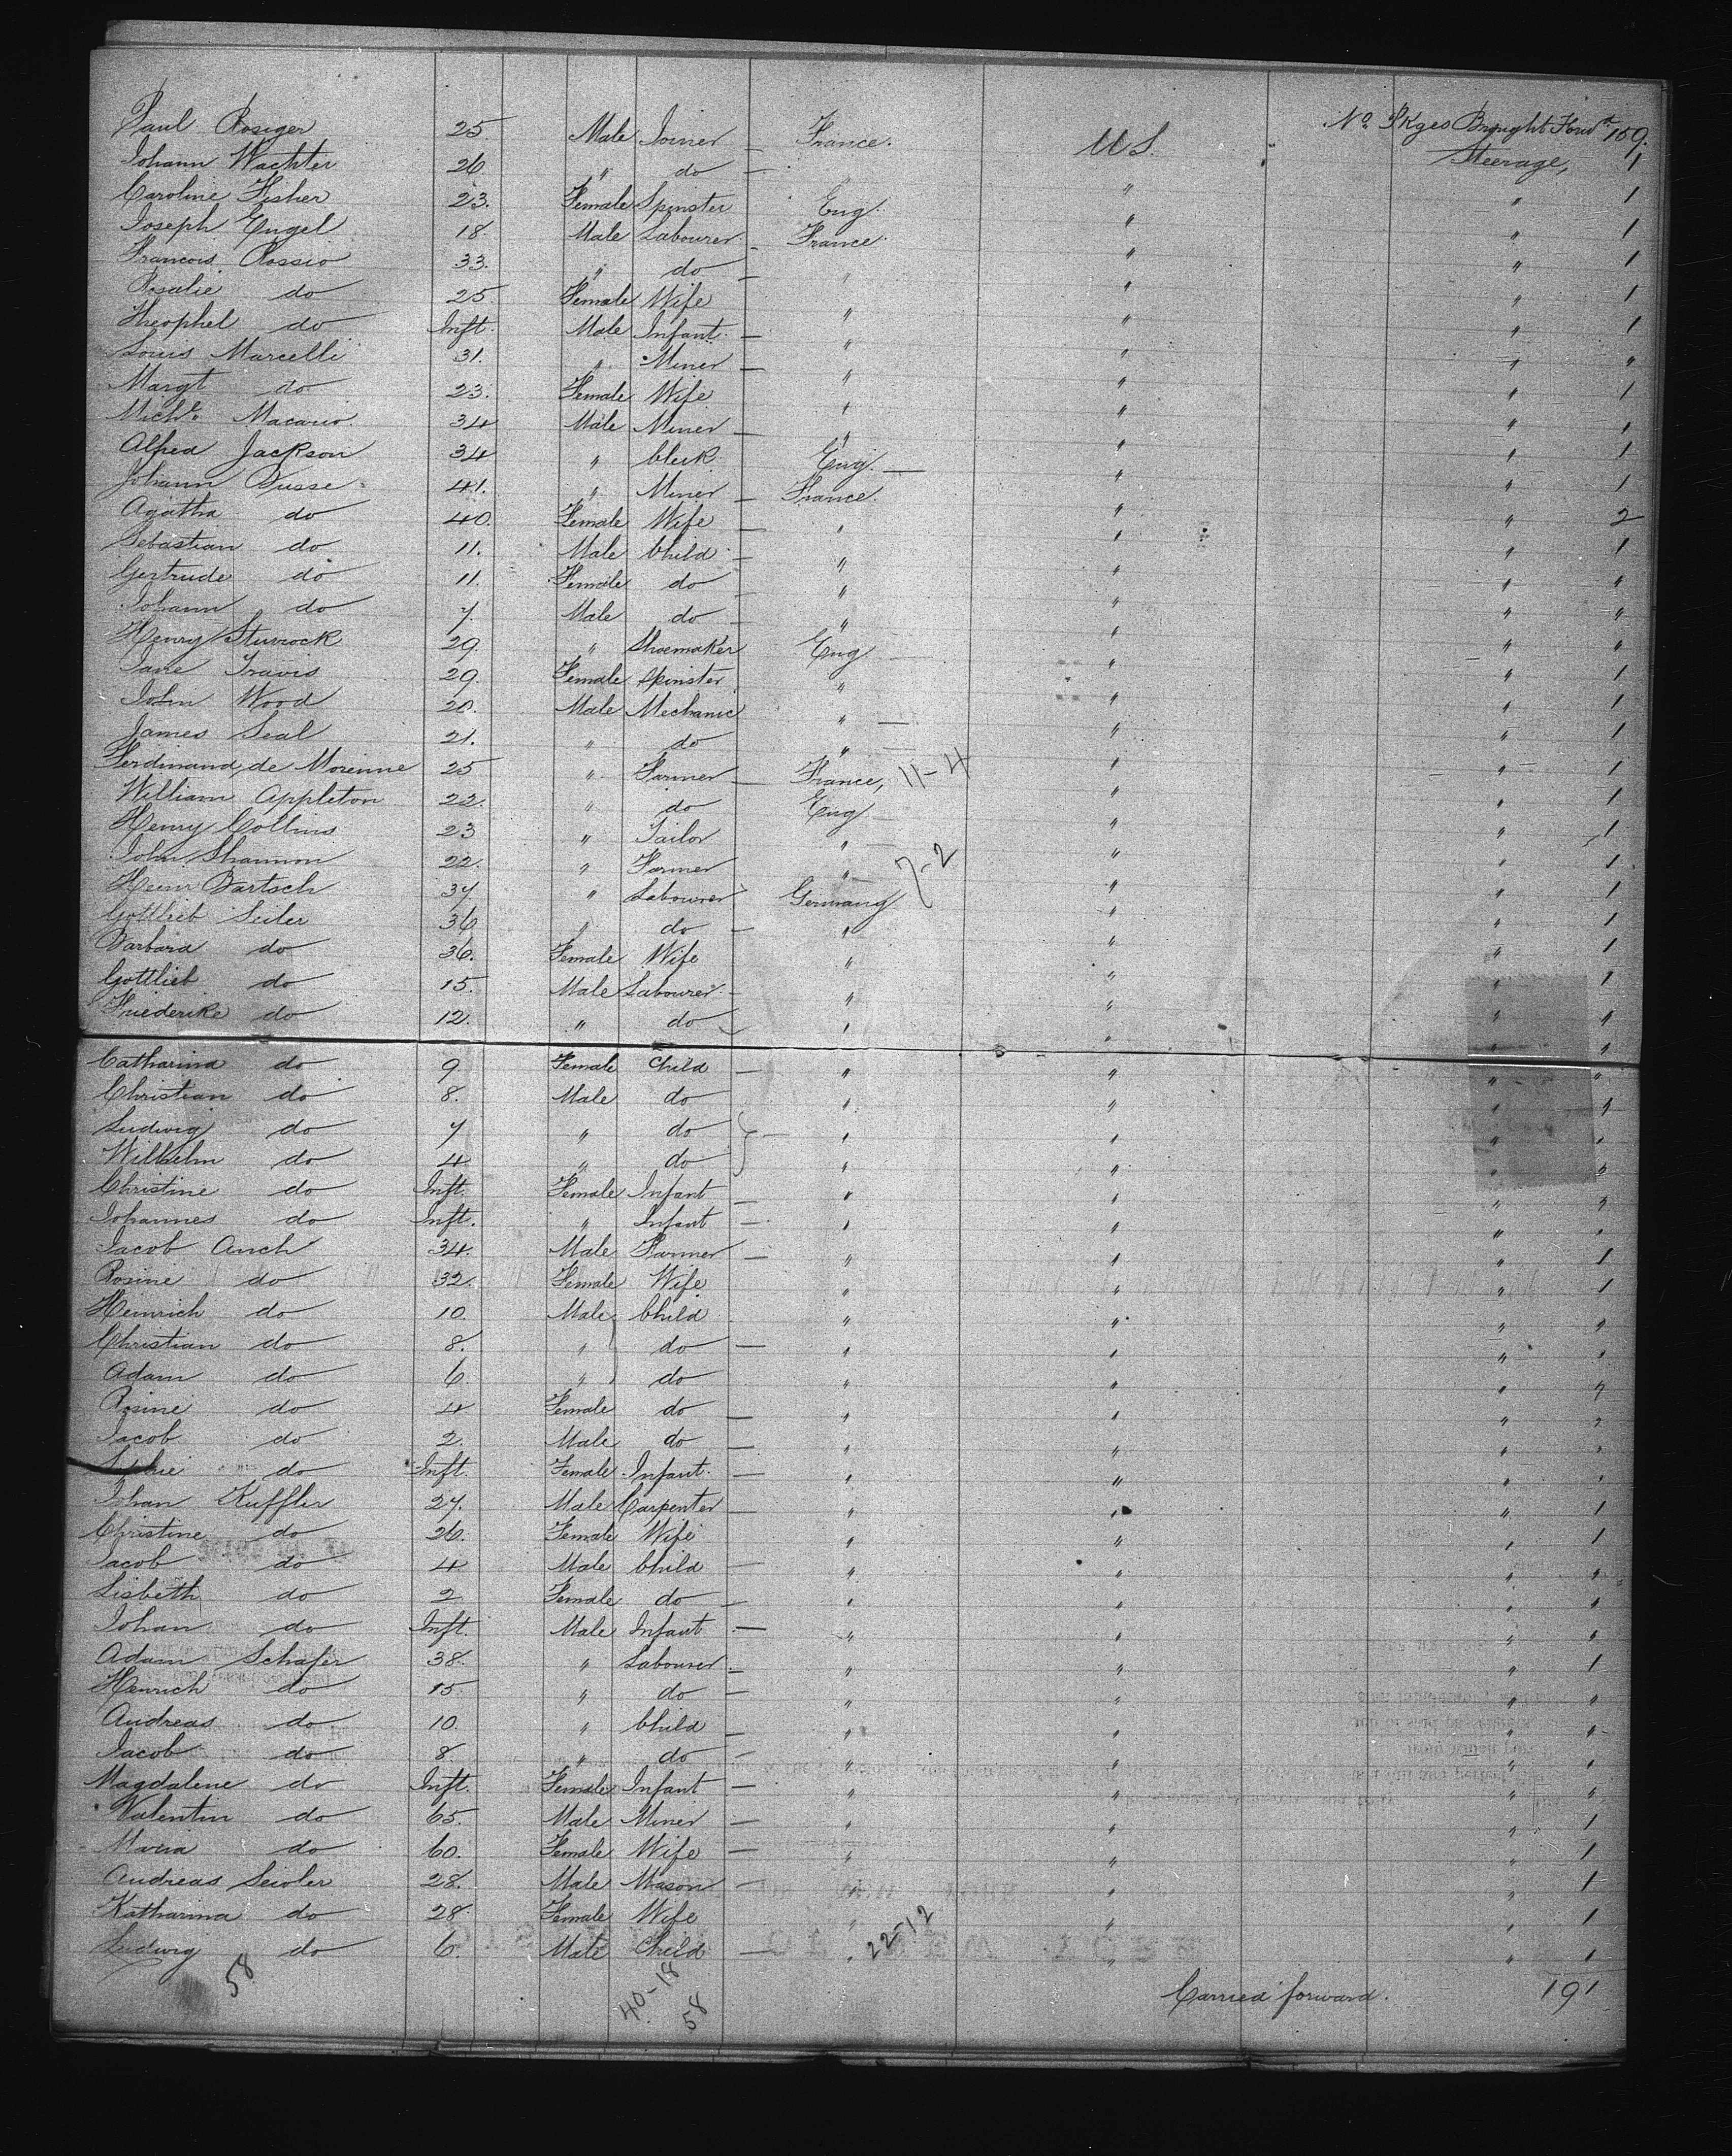 No. Pkges Brought Forwd 159.
Paul Rosiger 25 Male Joiner — France. U S. Steerage, 1
Johann Wachter 26 " do — " " " 1
Caroline Fisher 23. Female Spinster Eng. " " 1
Joseph Engel 18 Male Labourer — France. " " 1
Francois Rossio 33. " do — " " " 1
Rosalie do 25. Female Wife " " " 1
Theophel do Inft. Male Infant. — " " " "
Louis Marcelli 31. " Miner — " " " 1
Margt do 23. Female Wife " " " 1
Michl. Macario 34 Male Miner — " " " 1
Alfred Jackson 34 " Clerk Eng. — " " 1
Johann Busse 41. " Miner — France. " " 2
Agatha do 40. Female Wife — " " " 1
Sebastian do 11. Male Child — " " " "
Gertrude do 11. Female do — " " " "
Johann do 7. Male do — " " " "
Henry Sturrock 29. " Shoemaker Eng — " " 1
Jane Travis 29. Female Spinster " " " 1
John Wood 20. Male Mechanic " — " " 1
James Seal 21. " do " — " " 1
Ferdinand de Morienne 25 " Farmer — France, 11-4 " " 1
William Appleton 22. " do Eng — " " 1
Henry Collins 23 " Tailor " — " " 1
John Shannon 22. " Farmer " — 7-2 " " 1
Heinr Bartsch 37 " Labourer Germany " " 1
Gottlieb Seiler 36 " do — " " " 1
Barbara do 36. Female Wife " " " 1
Gottlieb do 15. Male Labourer — " " " "
Friederike do 12. " do " " " "
Catharina do 9 Female Child — " " " "
Christian do 8. Male do " " " "
Ludwig do 7 " do — " " " "
Wilhelm do 4 " do " " " "
Christine do Inft. Female Infant — " " " "
Johannes do Inft. " Infant — " " " "
Jacob Auch 34. Male Farmer — " " " 1
Rosine do 32. Female Wife " " " 1
Heinrich do 10. Male Child " " " "
Christian do 8. " do — " " " "
Adam do 6. " do " " " "
Rosine do 4 Female do — " " " "
Jacob do 2. Male do — " " " "
do Inft. Female Infant. — " " " "
Johan Kuffler 27. Male Carpenter — " " " 1
Christine do 26. Female Wife " " " 1
Jacob do 4 Male Child — " " " "
Lisbeth do 2 Female do — " " " "
Johan do Inft. Male Infant — " " " "
Adam Schafer 38. " Labourer — " " " 1
Henrich do 15 " do — " " " "
Andreas do 10. " Child — " " " "
Jacob do 8. " do — " " " "
Magdalene do Inft. Female Infant — " " " "
Valentin do 65. Male Miner — " " " 1
Maria do 60. Female Wife — " " " 1
Andreas Seidler 28. Male Mason — " " " 1
Katharina do 28. Female Wife " " " 1
Ludwig do 6. Male Child — " 22-12 " " 1
58 40-18 58 Carried forward. 191